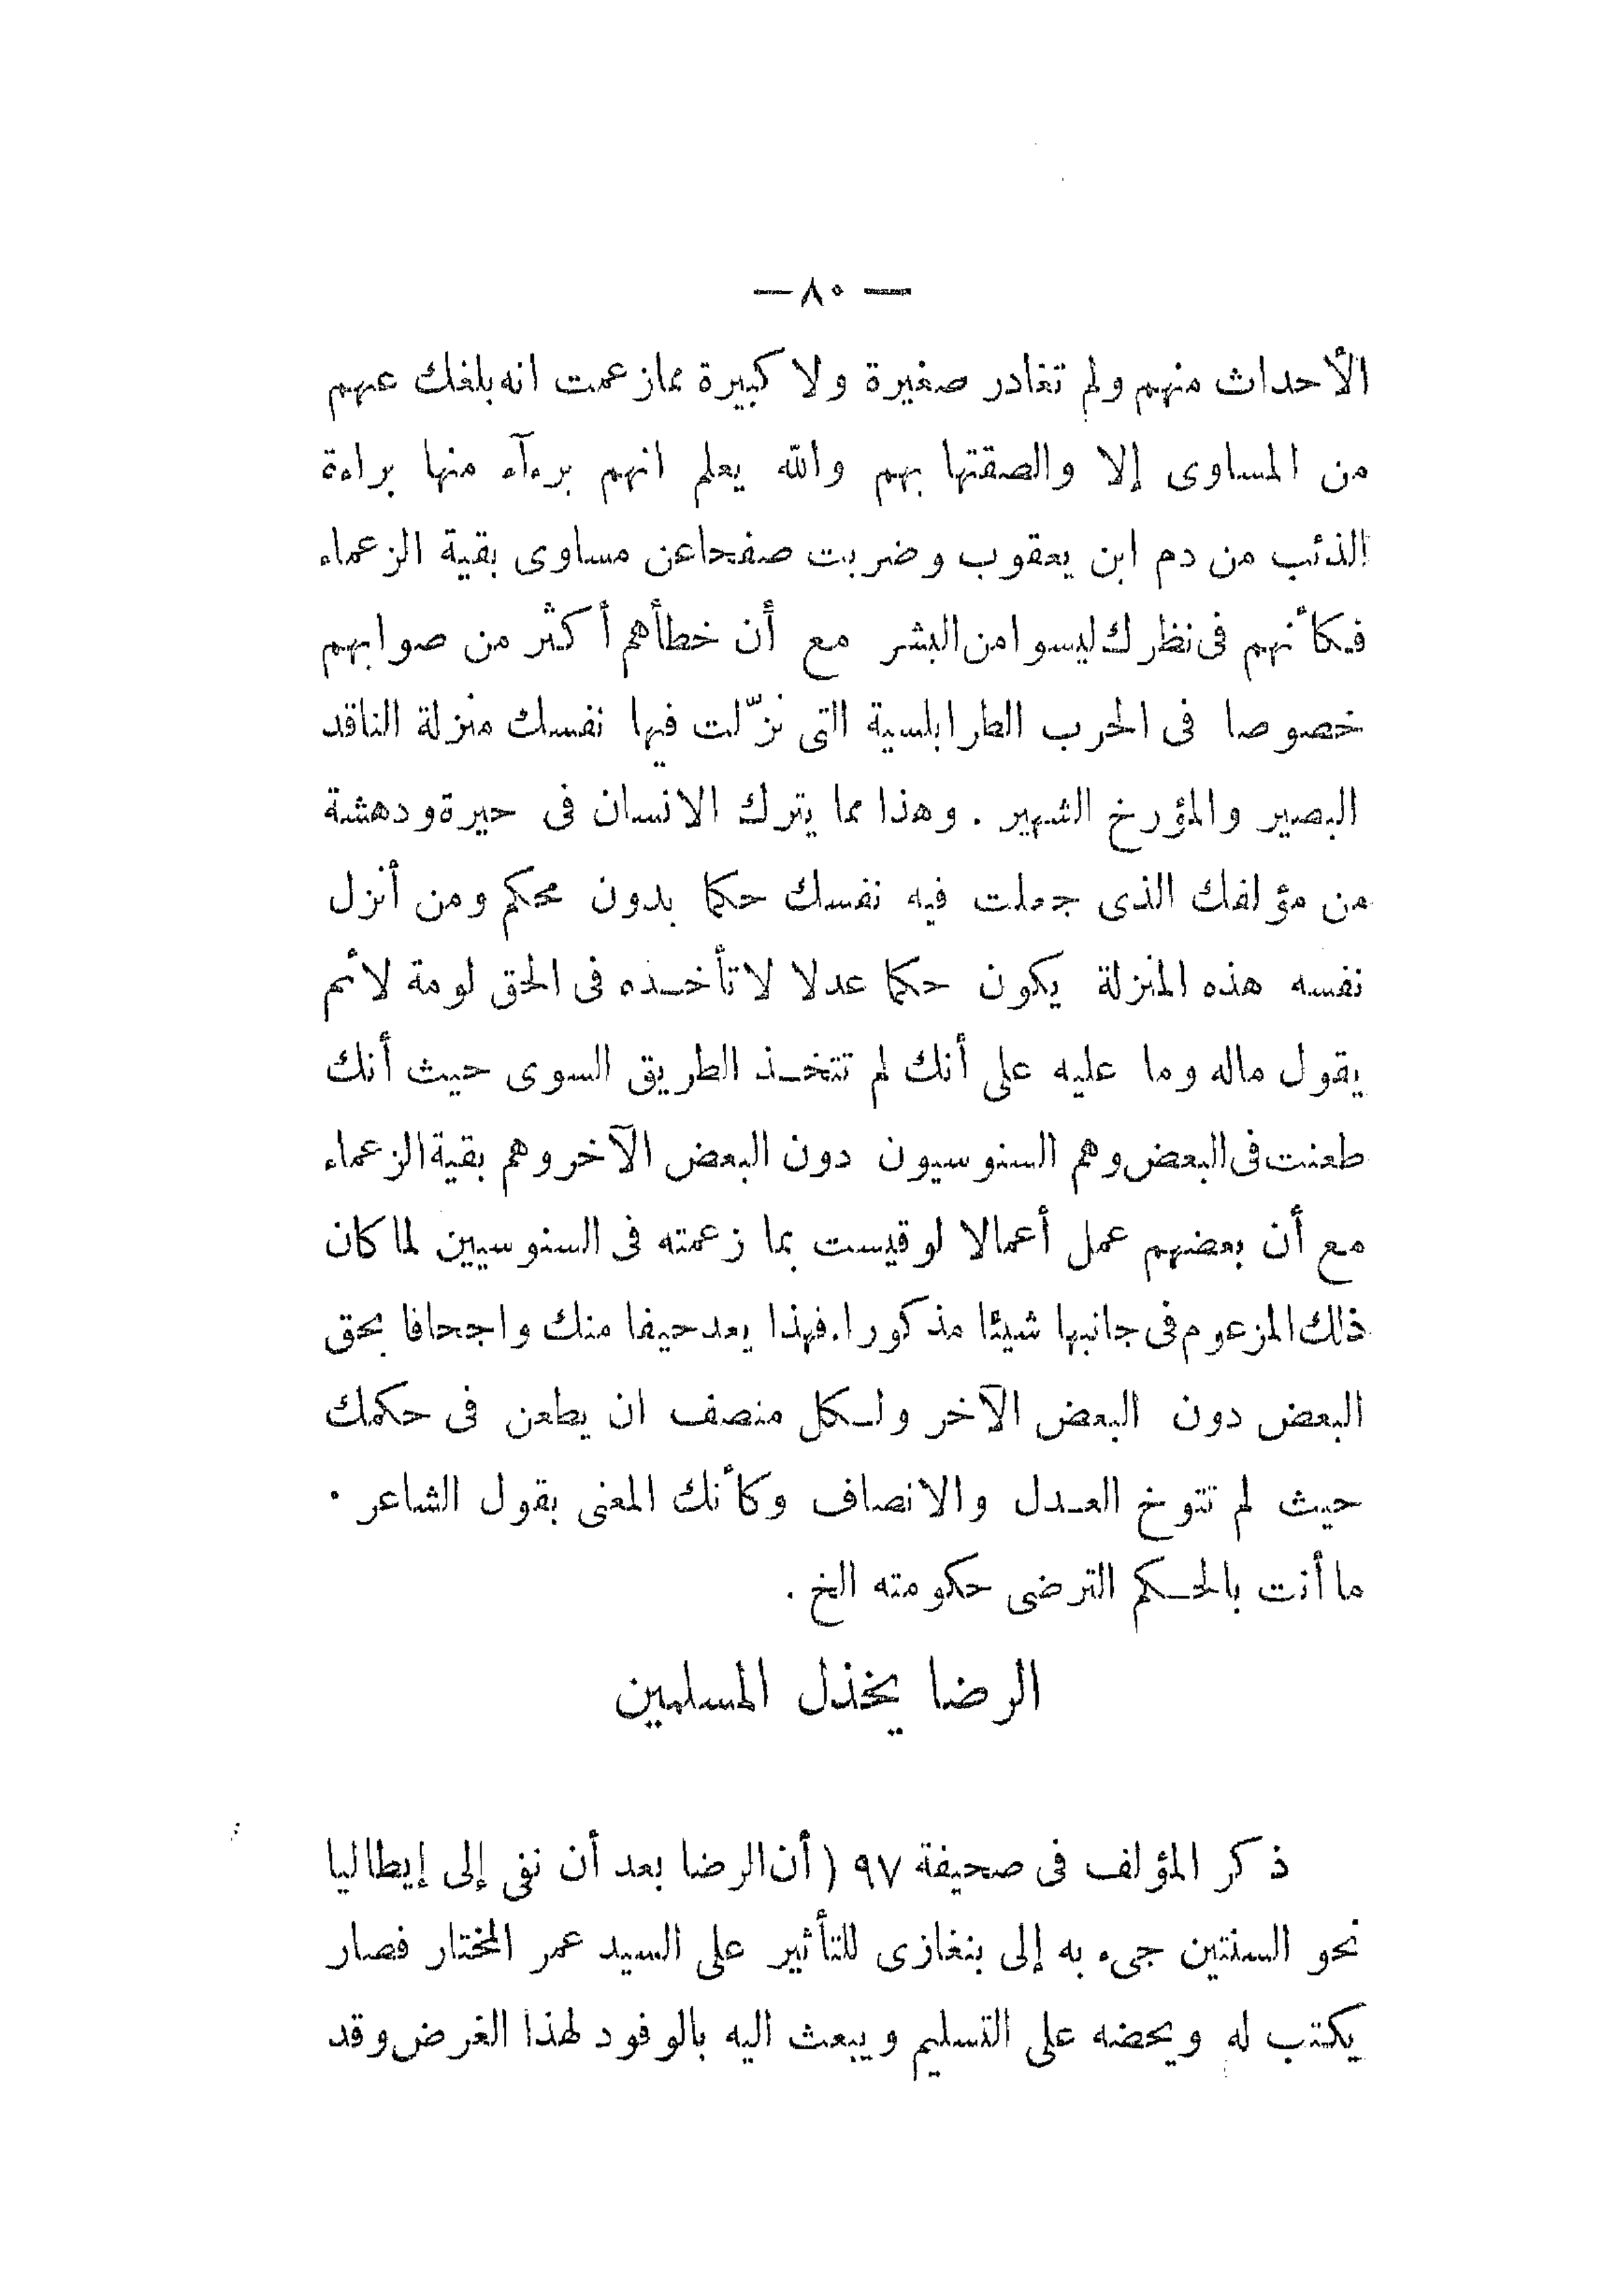 — ٨٠ —
الأحداث منهم ولم تغادر صغيرة ولا كبيرة مما زعمت انه بلغك عنهم
من المساوى إلا والصقتها بهم والله يعلم انهم برءآء منها براءة
الذئب من دم ابن يعقوب وضربت صفحا عن مساوى بقية الزعماء
فكأنهم فى نظرك ليسوا من البشر مع أن خطأهم أكثر من صوابهم
خصوصا فى الحرب الطرابلسية التى نزّلت فيها نفسك منزلة الناقد
البصير والمؤرخ الشهير . وهذا مما يترك الانسان فى حيرة ودهشة
من مؤلفك الذى جعلت فيه نفسك حكما بدون محكم ومن أنزل
نفسه هذه المنزلة يكون حكما عدلا لا تأخذه فى الحق لومة لائم
يقول ماله وما عليه على أنك لم تتخذ الطريق السوى حيث أنك
طعنت فى البعض وهم السنوسيون دون البعض الآخر وهم بقية الزعماء
مع أن بعضهم عمل أعمالا لو قيست بما زعمته فى السنوسيين لما كان
ذلك المزعوم فى جانبها شيئا مذكورا. فهذا يعد حيفا منك واجحافا بحق
البعض دون البعض الآخر ولكل منصف ان يطعن فى حكمك
حيث لم تتوخ العدل والانصاف وكأنك المعنى بقول الشاعر .
ما أنت بالحكم الترضى حكومته الخ .
الرضا يخذل المسلمين
ذكر المؤلف فى صحيفة ٩٧ ( أن الرضا بعد أن نفى إلى إيطاليا
نحو السنتين جىء به إلى بنغازى للتأثير على السيد عمر المختار فصار
يكتب له ويحضه على التسليم ويبعث اليه بالوفود لهذا الغرض وقد